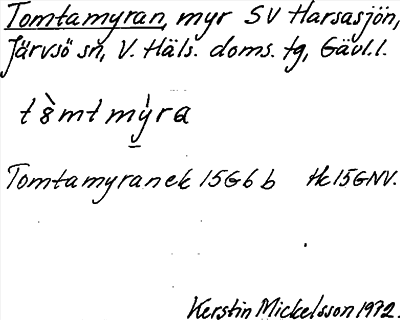 Tomtamyran, myr SV Harsasjön,
Järvsö sn, V. Häls. doms. tg, Gävl.l.
t ò̈ m t m ỳ̠ r a
Tomtamyran ek 15G6b Hk15GNV.
Kerstin Mickelsson 1972.